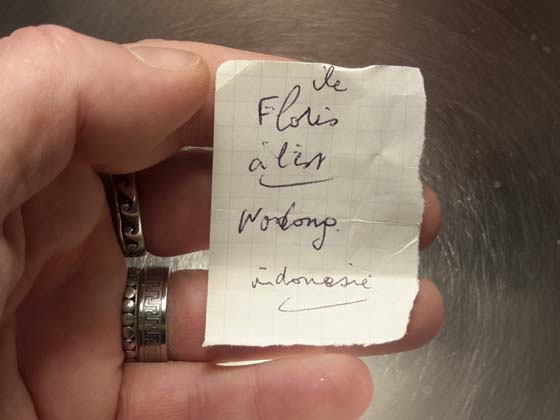 ile
Flores
à l'est
Wodong.
indonesie